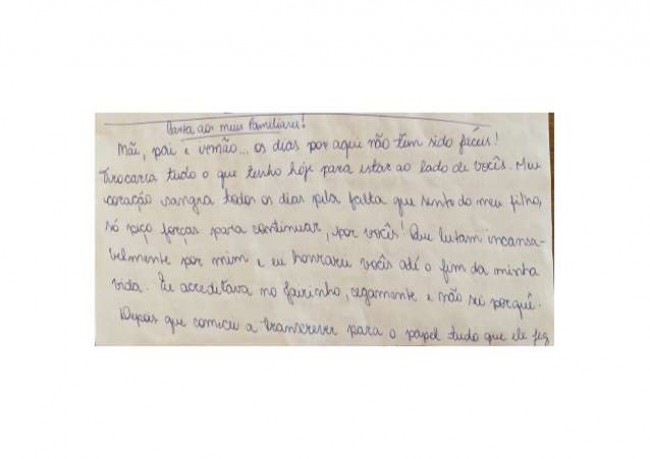 Carta aos meus familiares!
Mãe, pai e irmão... os dias por aqui não têm sido fáceis!
Trocaria tudo o que tenho hoje para estar ao lado de vocês. Meu
coração sangra todos os dias pela falta que sinto do meu filho,
só peço forças para continuar, por vocês! Que lutam incansa-
velmente por mim e eu honrarei vocês até o fim da minha
vida. Eu acreditava no Jairinho, cegamente e não sei porquê.
Depois que comecei a transcrever para o papel tudo que ele fez